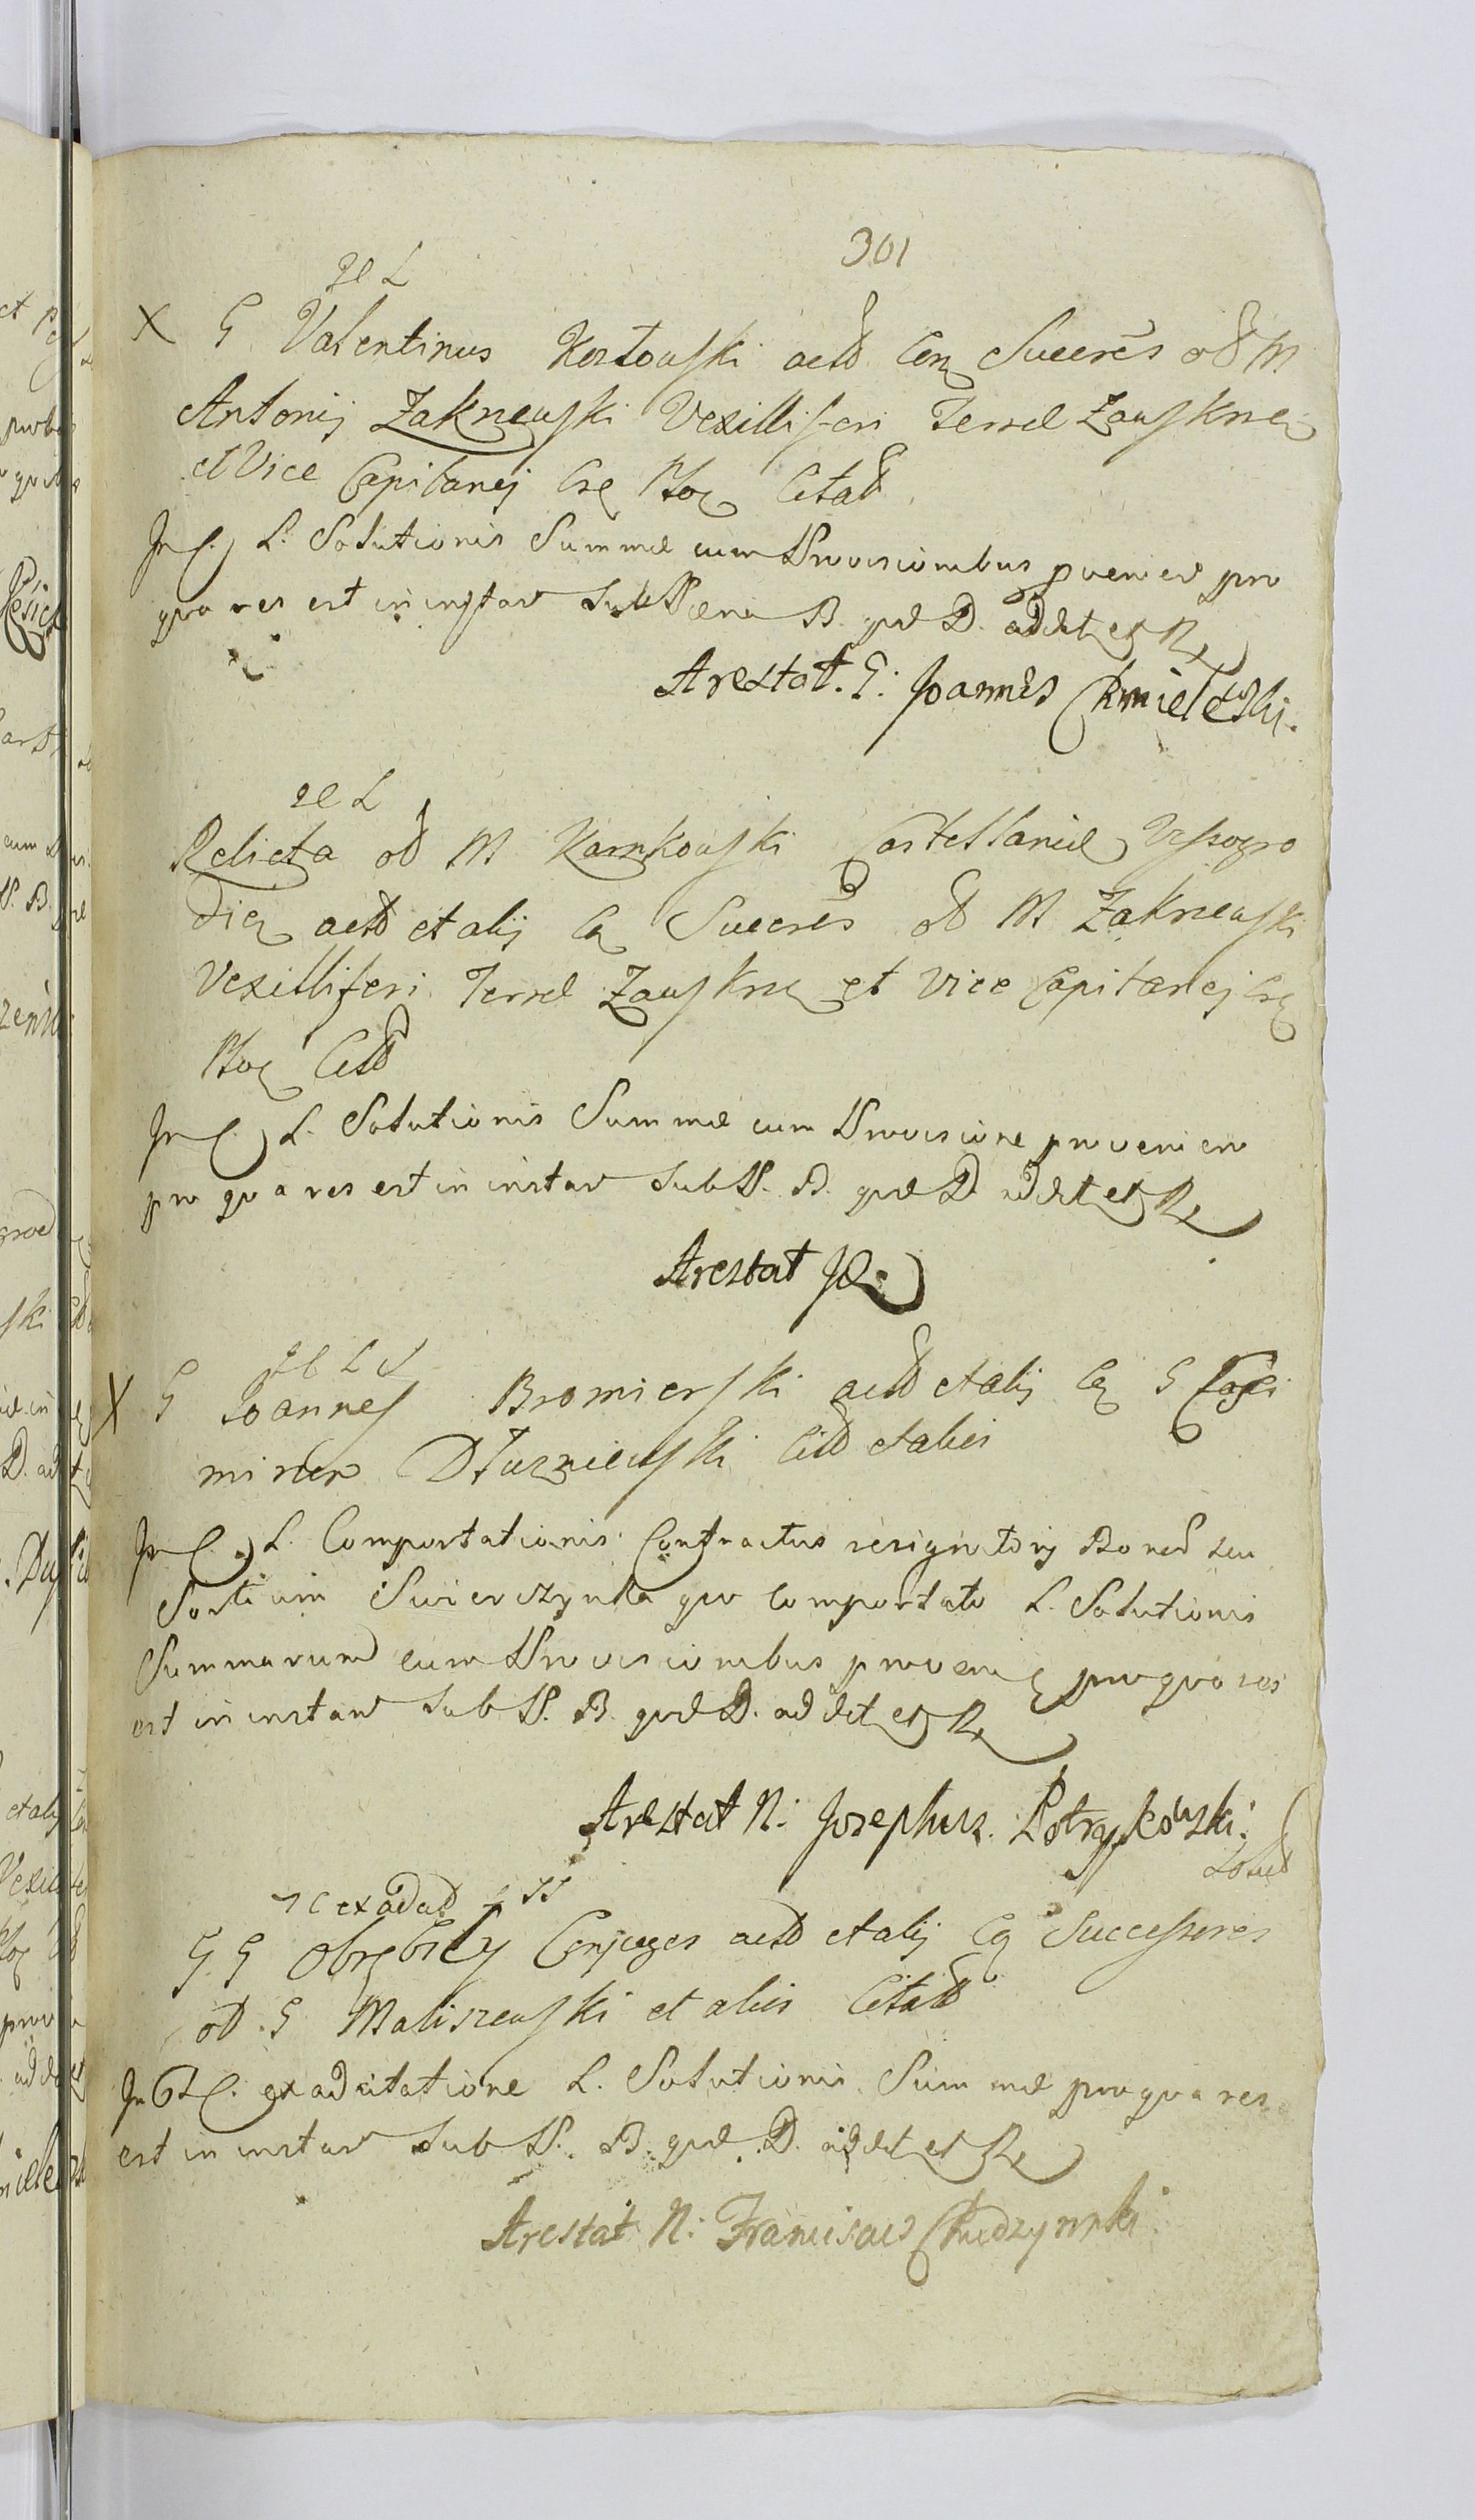 301
X G Valentinus Kozłouski actõ Cen Succrēs oð M
Antonij Zakrzeuski Vexilliferi Terræ Zauskrnen
et Vice Capitanej Cre Ploc Citatõ
In C. L. Solutionis Summæ cum Provisionibus provenien pro
qva res est in instan sub Pæna B. qvæ D. addet et R
Arestat. G: Joannes Chmielewski.
Relicta oð M Karnkouski Castellaniæ Vyssogro
dien actõ et alij Cn Succrēs oð M Zakrzeuski
Vexilliferi Terræ Zauskrn et Vice Capitanej Cre
Ploc Citõ
In C. L. Solutionis Summæ cum Provisione provenien
pro qva res est in instan sub P. B. qvæ D addet et R
Arestat
X G Joannes Bromierski actõ et alij Cn G Casi
mirum Dłuzniewski Citõ et alios
In C. L. Comportationis Contractus resignatorij Bonorð seu
Sortium Swierczynka qvo Comportato L. Solutionis
Summarum cum Provisionibus provenien pro qva res
est in instan sub P. B. qvæ D. addet et R
Arestat N: Josephus. Potrzykowski.
ex adcit
G. G Obrębscy Conjuges actõ et alij Cn Successores
oð. G Maliszeuski et alios Citatõ
In C. ex adcitatione L. Solutionis Summæ pro qva res
est in instan sub P. B. qvæ D. addet et R
Arestat N: Franciscus Chudzynski